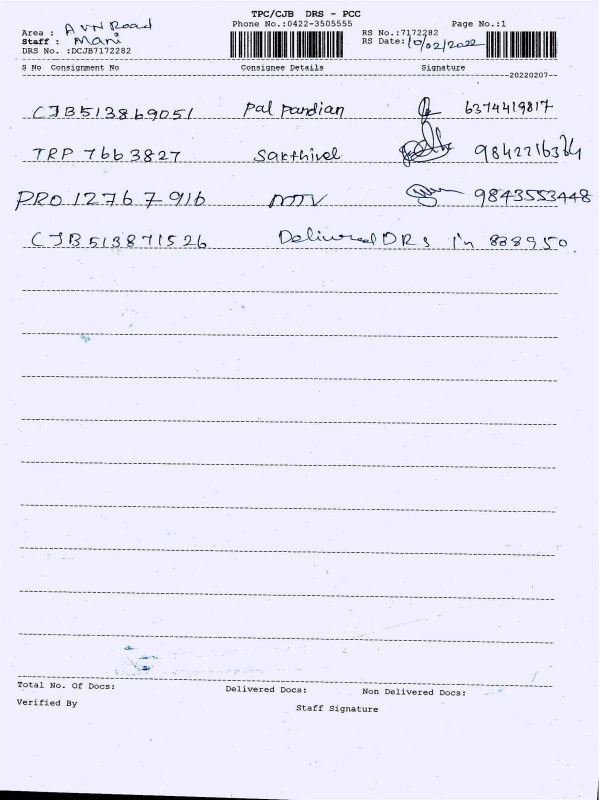 TPC/CJB DRS - PCC
Area : AVN Road Phone No.:0422-3505555 Page No.:1
Staff : Mani RS No.:7172282
DRS No. :DCJB7172282 RS Date:10/02/2022
S No Consignment No Consignee Details Signature
20220207
CJB513869051 Pal Pandian 6374419817
TRP 7663827 Sakthivel 9842216364
PRO 12767916 MTV 9843553448
CJB513871526 Delivered DRS in 888950.
Total No. Of Docs: Delivered Docs: Non Delivered Docs:
Verified By Staff Signature